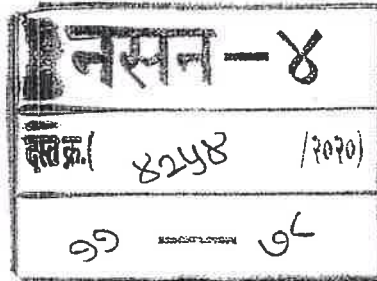 नसन-४
दस्त क्र.( ४२५४ /२०२०)
११ — ७८